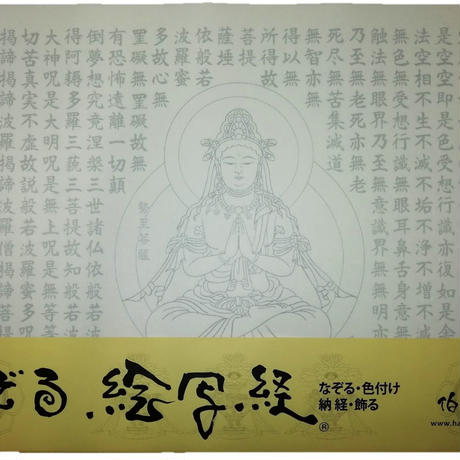 是空空即是色受想行識亦復如是舎
法空相不生不滅不垢不浄不増不減
無色無受想行識無眼耳鼻舌身意無
触法無眼界乃至無意識界無無明亦
乃至無老死亦無老
死尽無苦集滅道
無智亦無
得以無
所得故
菩提
薩埵
依般若
波羅蜜
多故心無
罣礙無罣礙故無
有恐怖遠離一切顛
倒夢想究竟涅槃三世諸仏依般若
得阿耨多羅三藐三菩提故知般若波
大神呪是大明呪是無上呪是無等等
切苦真実不虚故説般若波羅蜜多呪
揭諦揭諦波羅揭諦波羅僧揭諦菩提
勢至菩薩
ぞる 絵写経®
なぞる・色付け
納経・飾る
伯
www.ha